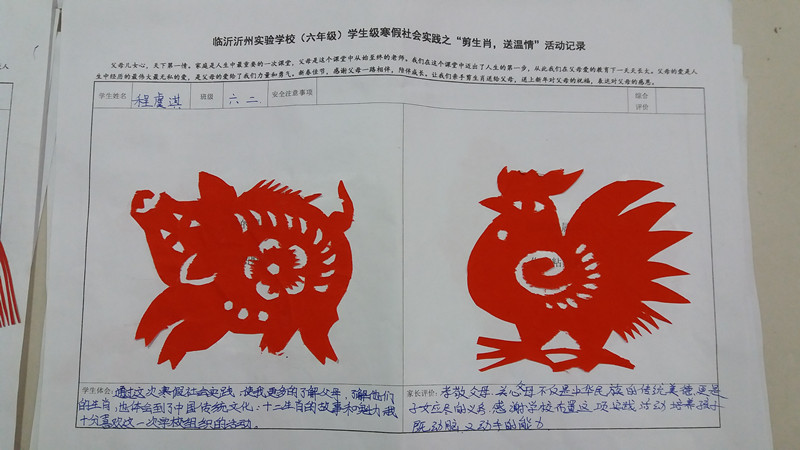 临沂沂州实验学校（六年级）学生级寒假社会实践之“剪生肖，送温情”活动记录
父母儿女心，天下第一情。家庭是人生中最重要的一次课堂，父母是这个课堂中从始至终的老师。我们在这个课堂中迈出了人生的第一步，从此我们在父母爱的教育下一天天长大。父母的爱是人
生中经历的最伟大最无私的爱，是父母的爱给了我们力量和勇气。新春佳节，感谢父母一路相伴，陪伴成长。让我们亲手剪生肖送给父母，送上新年对父母的祝福，表达对父母的感恩。
学生姓名 程虞淇 班级 六 二 安全注意事项 综合
评价
学生体会：通过这次寒假社会实践，使我更多的了解父母，了解他们
的生肖，也体会到了中国传统文化：十二生肖的故事和魅力，我
十分喜欢这一次学校组织的活动。
家长评价：孝敬父母、关心父母不仅是中华民族的传统美德，更是
子女应尽的义务。感谢学校布置这项实践活动培养孩子
既动脑又动手的能力